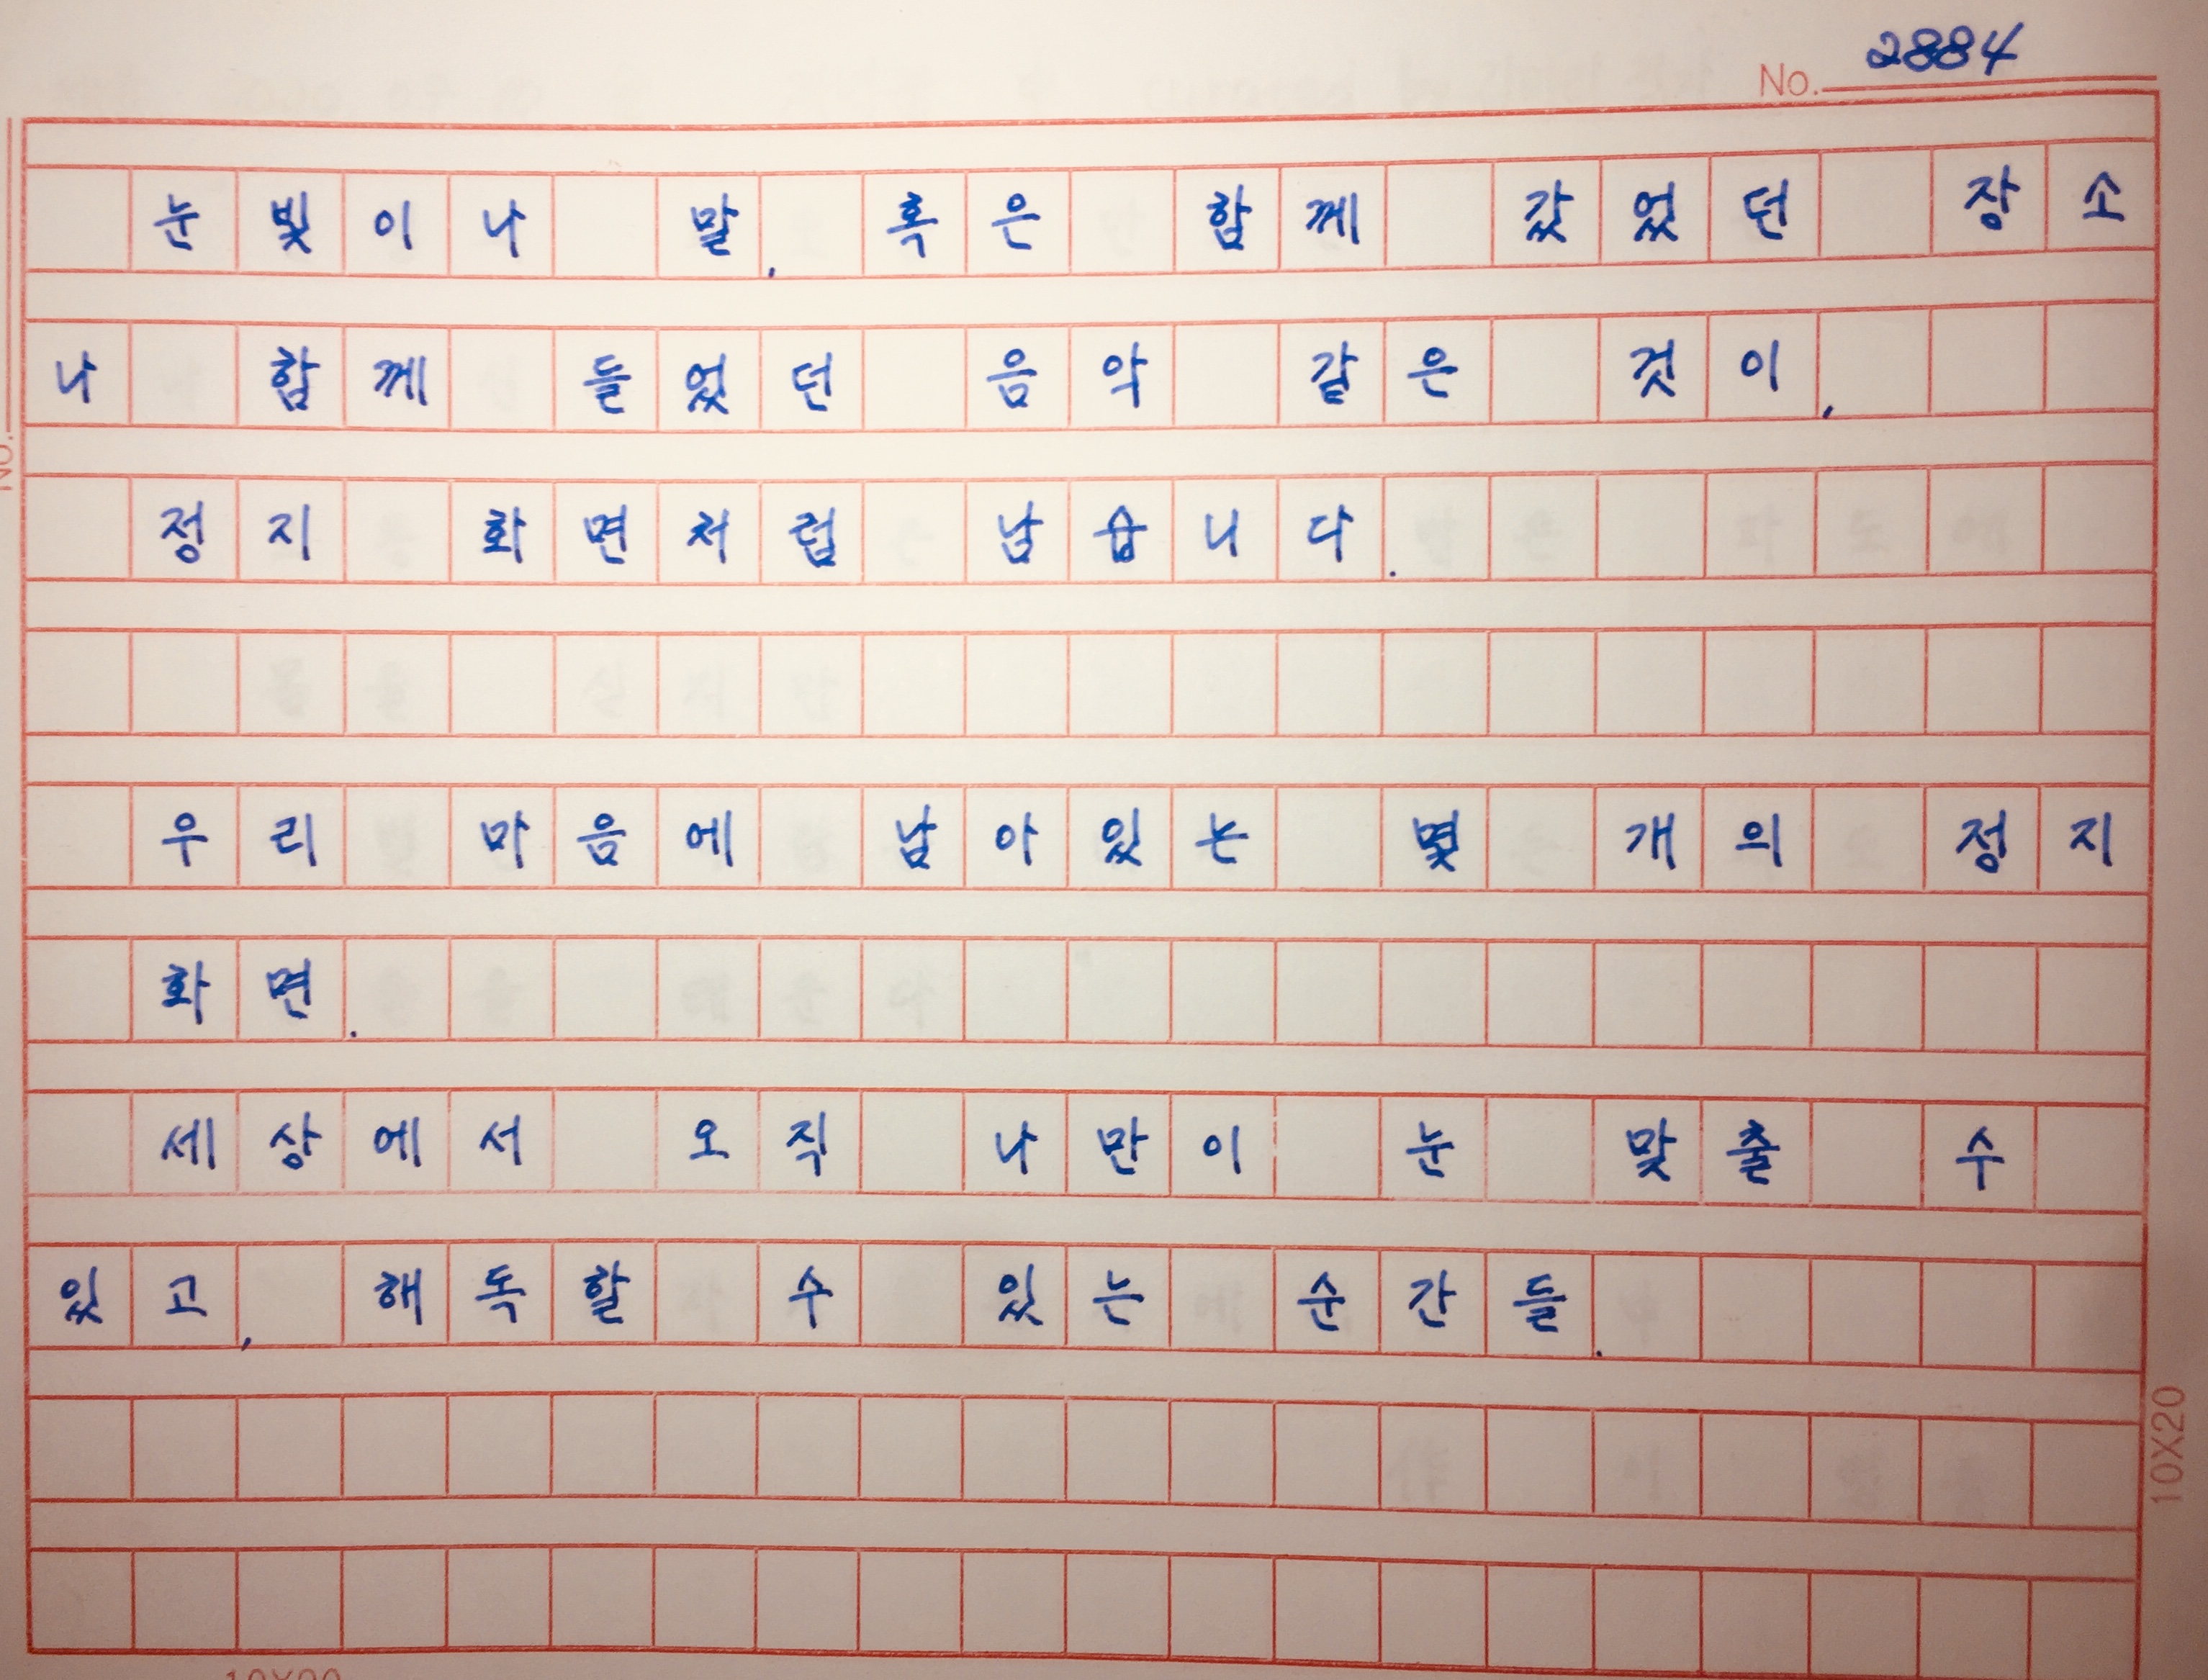 No. 2884
눈빛이나 말, 혹은 함께 갔었던 장소
나 함께 들었던 음악 같은 것이,
정지 화면처럼 남습니다.
우리 마음에 남아있는 몇 개의 정지
화면.
세상에서 오직 나만이 눈 맞출 수
있고, 해독할 수 있는 순간들.
10X20